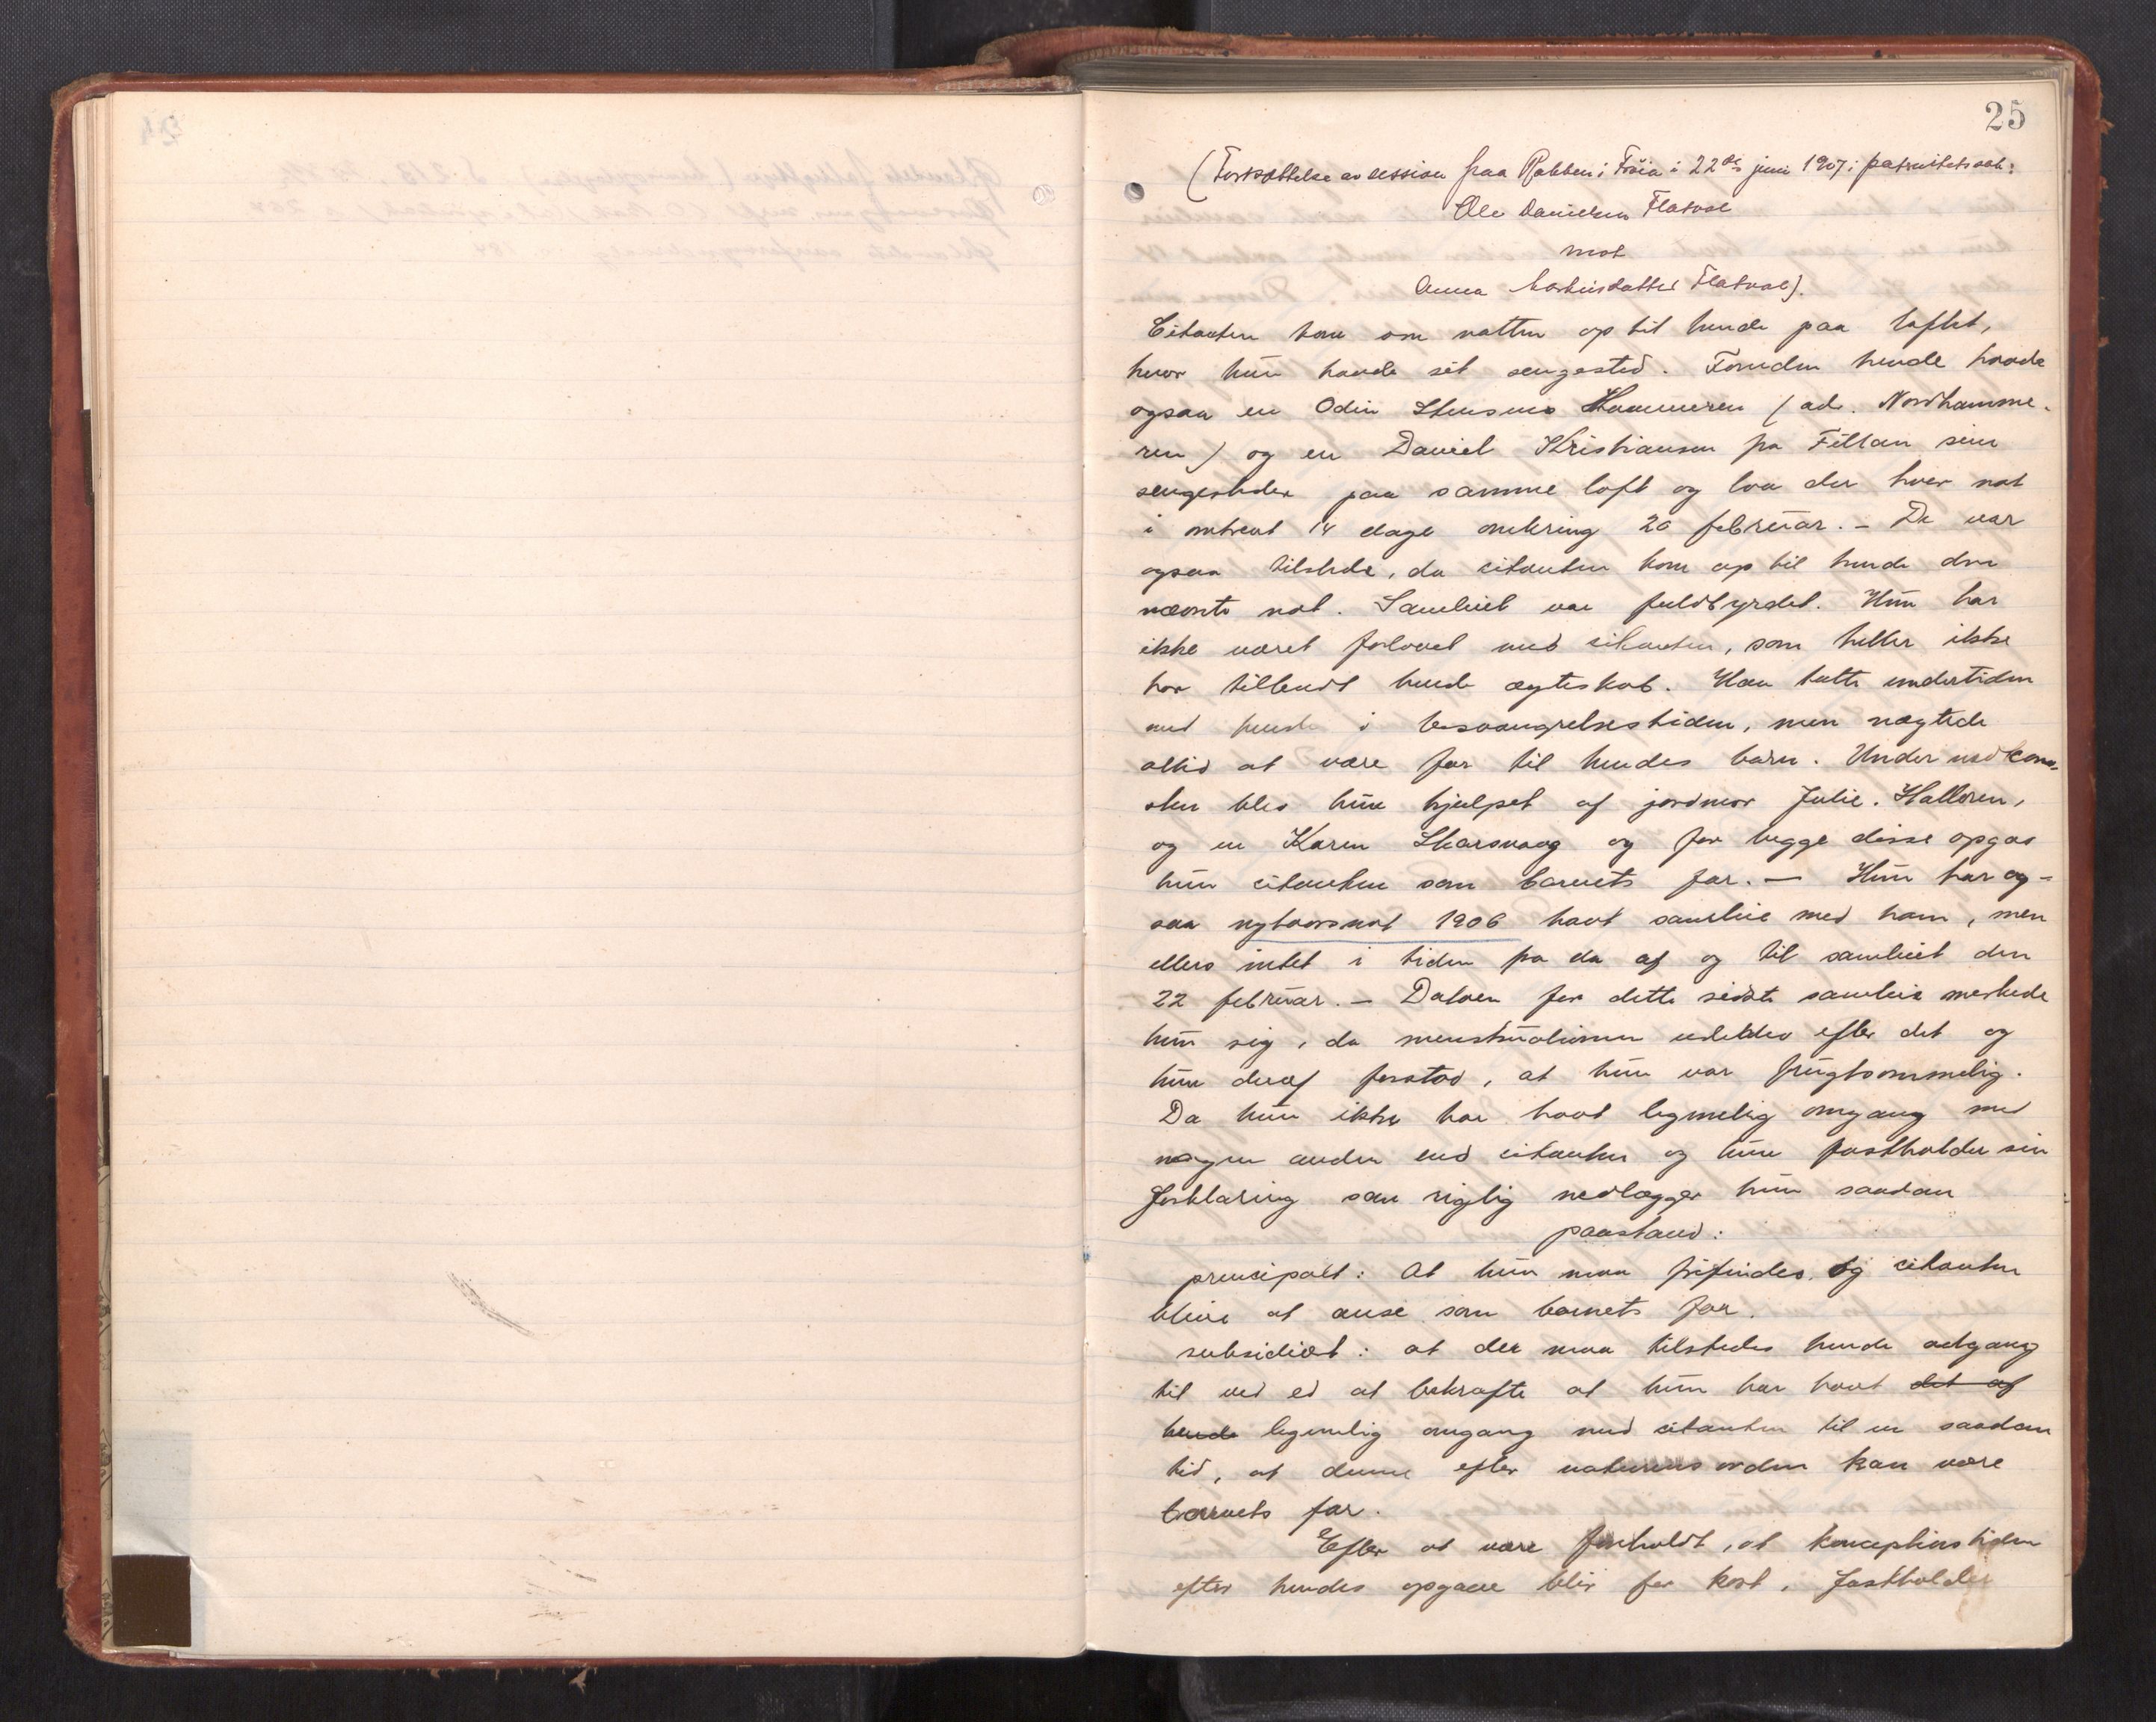 25
(Fortsættelse av session paa Rabben i Fröia i 22de juni 1907 i paternitetssak:
Ole Danielsen Flatval
mot
Anna Martinsdatter Flatval).
Citanten kom om natten op til hende paa loftet,
hvor hun havde sit sengested. Foruden hende havde
ogsaa en Odin Hammeren (ad. Nordhamme-
ren) og en Daniel Kristiansen fra Fillan sine
sengesteder paa samme loft og laa der hver nat
i omtrent 14 dage omkring 20 februar. – De var
ogsaa tilstede, da citanten kom op til hende den
nævnte nat. Samleiet var fuldbyrdet. Hun har
ikke været forlovet med citanten, som heller ikke
har tilbudt hende ægteskab. Han talte undertiden
med hende i besvangrelsestiden, men nægtede
altid at være far til hendes barn. Under nedkom-
sten blev hun hjulpet af jordmor Julie Halloren,
og en Karen Skarsvaag og for begge disse opgav
hun citanten som barnets far. – Hun har og-
saa nytaarsnat 1906 havt samleie med ham, men
ellers intet i tiden fra da af og til samleiet den
22 februar. – Datoen for dette sidste samleie merkede
hun sig, da menstruationen udeblev efter det og
hun deraf forstod, at hun var frugtsommelig.
Da hun ikke har havt legemelig omgang med
nogen anden end citanten og hun fastholder sin
forklaring som rigtig nedlægger hun saadan
paastand:
principalt: At hun maa frifindes og citanten
blive at anse som barnets far.
subsidiært: at der maa tilstedes hende adgang
til ved ed at bekræfte at hun har havt det af
hende legemlig omgang med citanten til en saadan
tid, at denne efter naturens orden kan være
barnets far.
Efter at være foreholdt, at konceptionstiden
efter hendes opgave blir for kort, fastholder